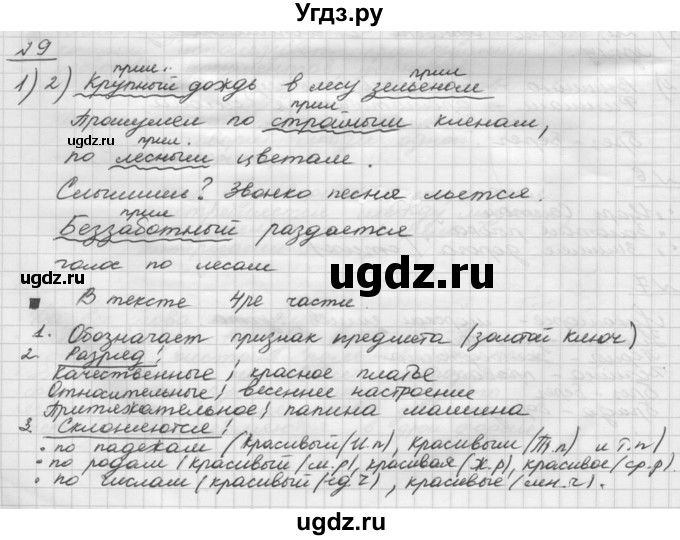 Угдз.ру
№9
прил. прил
1) 2) Крупный дождь в лесу зельеном
прил.
Прошумел по стройным кленам,
прил.
по лесным цветам.
Слышишь? Звонко песня льется.
прил
Беззаботный раздается
голос по лесам
В тексте 4ре части.
1. Обозначает признак предмета (золотой ключ)
2. Разряд:
Качественные; красное платье
Относительные; весеннее настроение
Притяжательное; папина машина
3. Склоняются:
• по падежам (красивый (И.п), красивым (Т.п) и т.п)
• по родам (красивый (м.р), красивая (ж.р), красивое (ср.р).
• по числам (красивый (ед.ч), красивые (мн.ч).
ugdz.ru
ugdz.ru
ugdz.ru
ugdz.ru
ugdz.ru
ugdz.ru
ugdz.ru